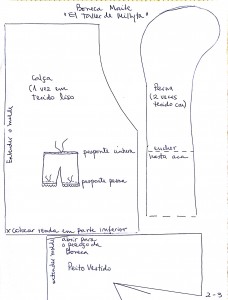 Boneca Maile
"El Taller de Millyta"
Calça
(1 vez em
tecido liso
Perna
(2 vezes
tecido cor)
Entender o molde
pesponte cintura
pesponte perna
encher
hasta aca
x colocar renda em parte inferior
entender molde
abrir para
o pescoço da
Boneca
Peito Vestido
2-9